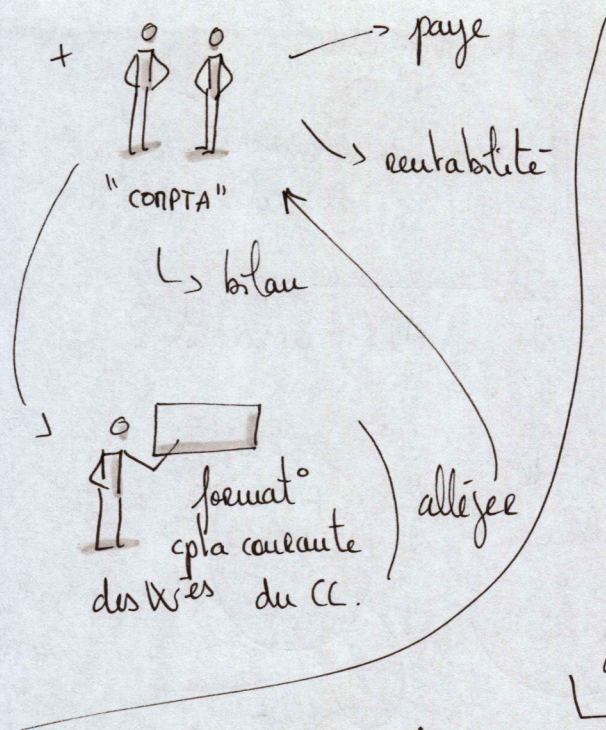 +
→ paye
↘ rentabilité
"COMPTA"
↳ bilan
format°
cpta courante
des du CC.
alléger